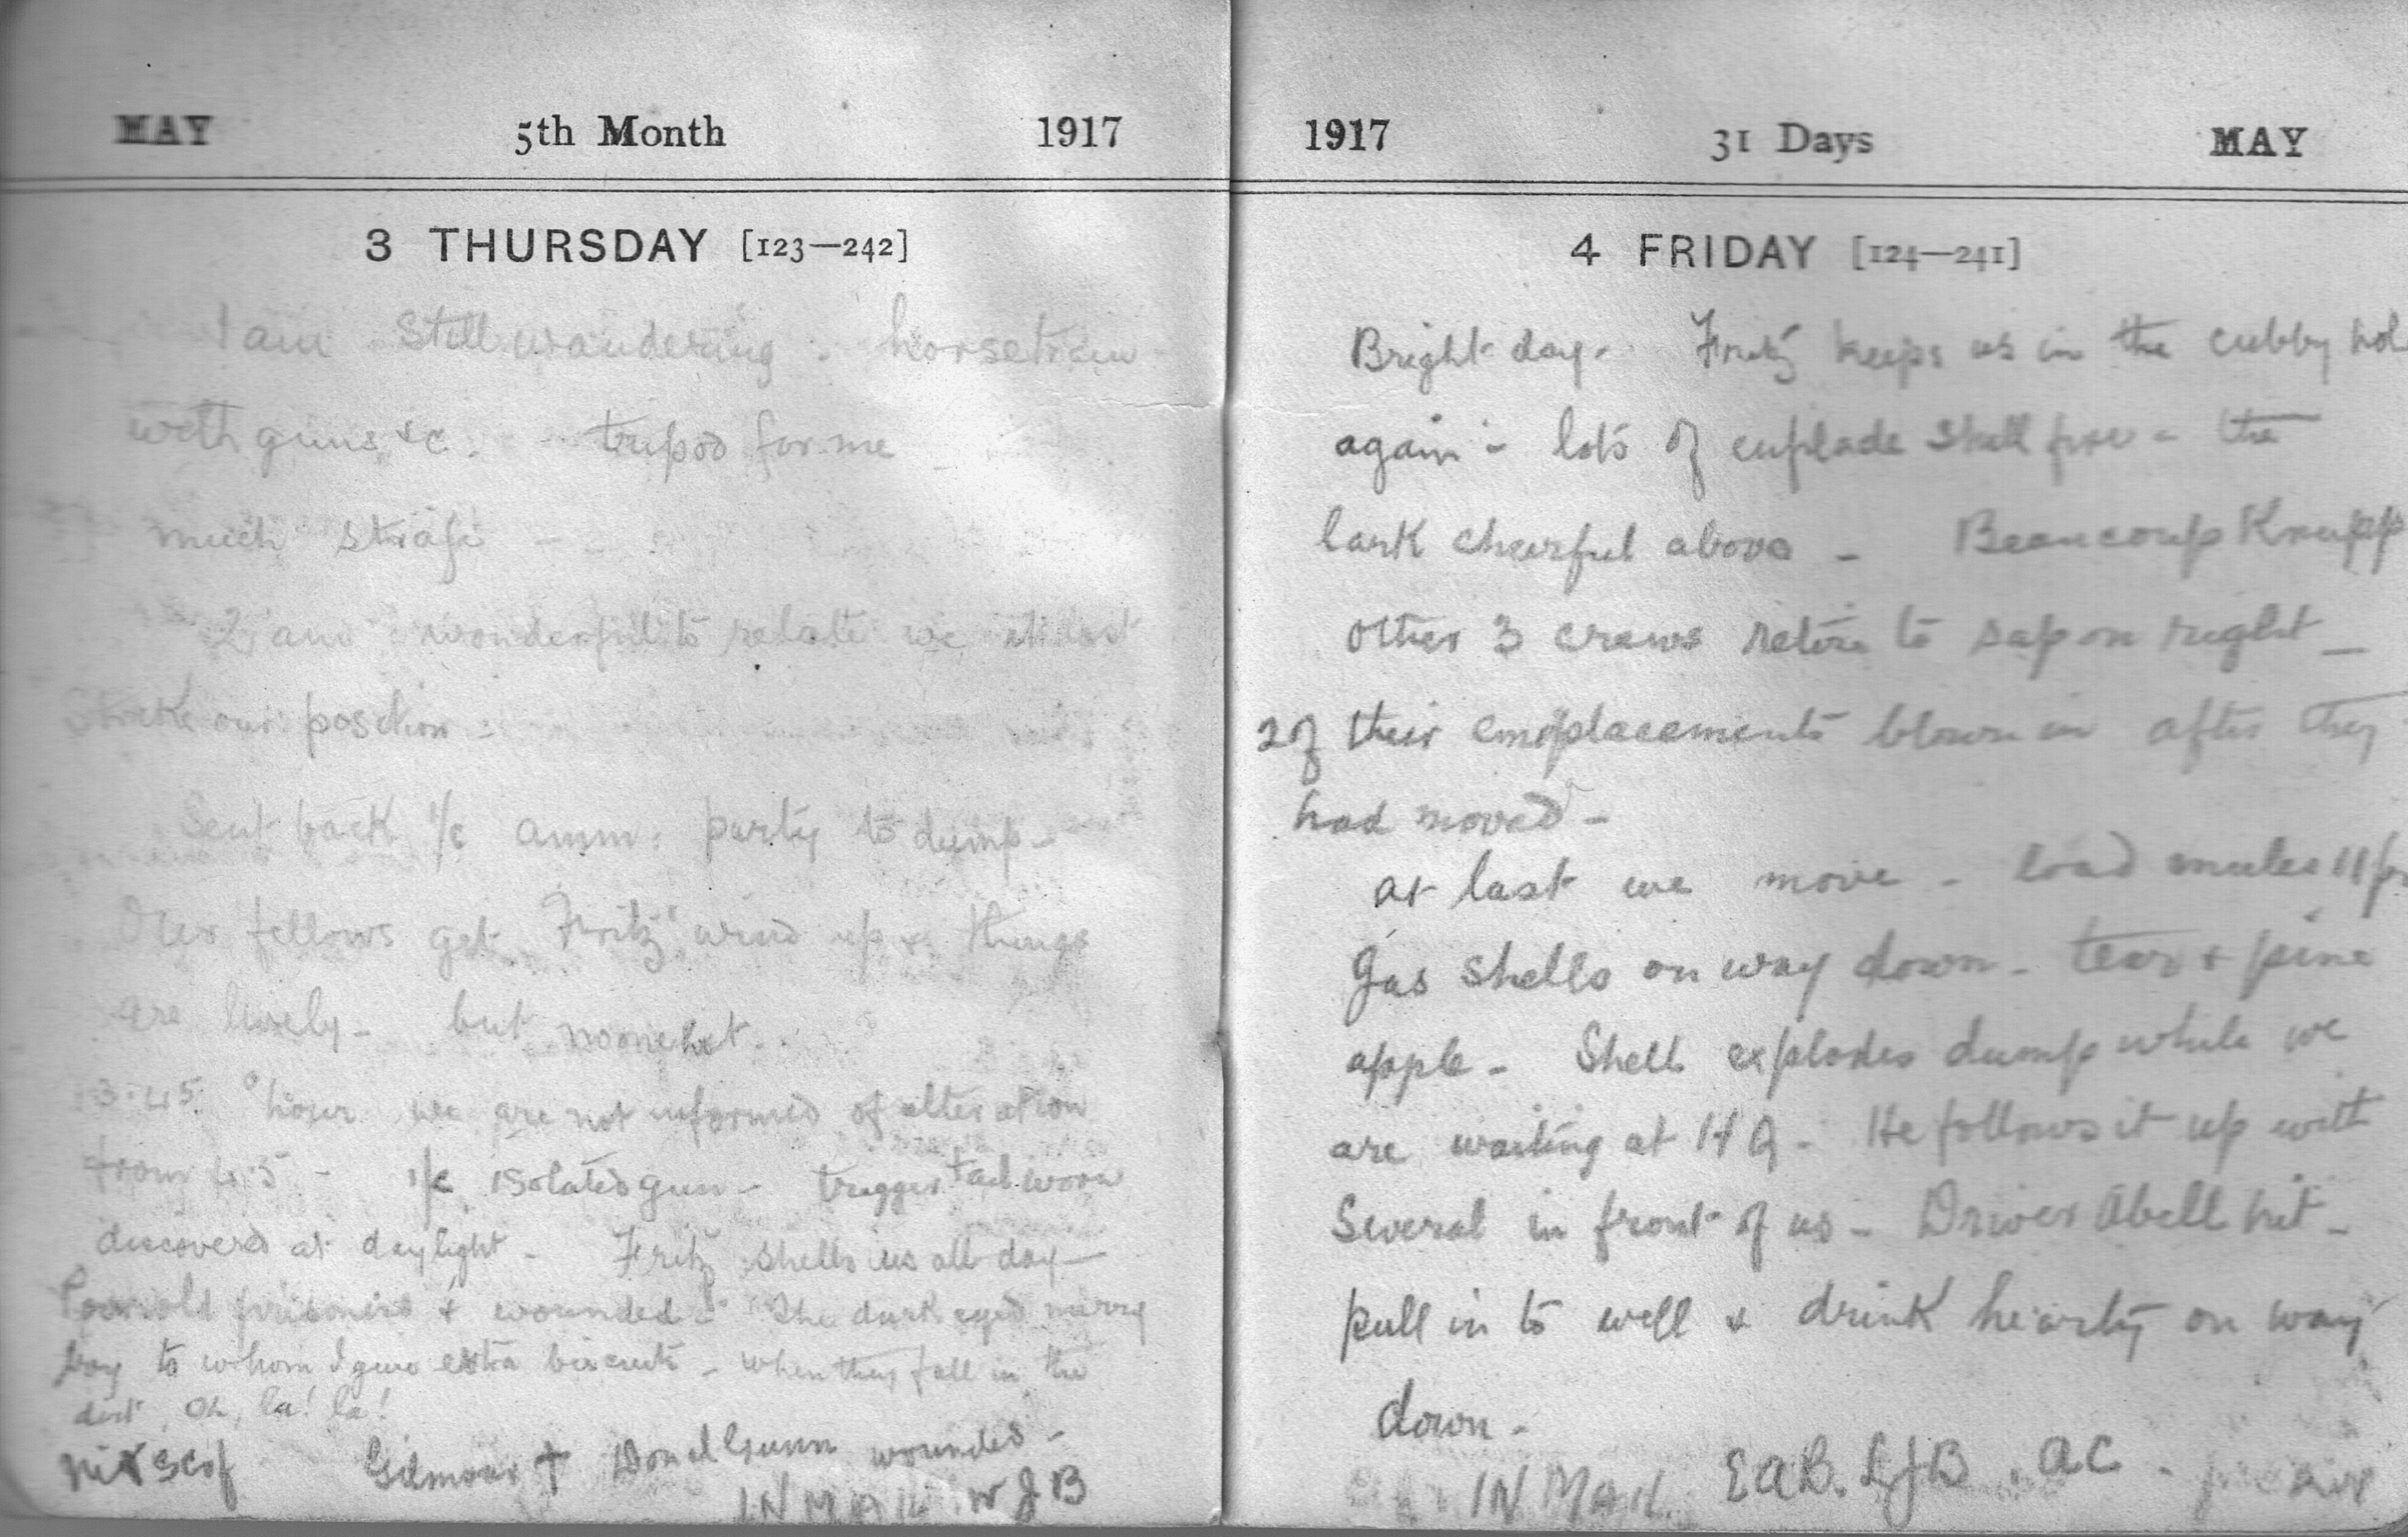 MAY 5th Month 1917
3 THURSDAY [123—242]
I am still wandering - horsetram
with guns &c. - tripod for me
much strafe -
2 am wonderful to relate we at last
strike our position -
Sent back i/c amm: party to dump -
Our fellows get Fritz' wind up & things
are lively - but no one hit.
3.45 hour we are not informed of alteration
from 4.5 - i/c isolated gun - trigger worn
discovered at daylight - Fritz shells us all day -
old prisoners & wounded - The dark eyed merry
boy to whom I give extra biscuits - when they fall in the
dirt, Oh, la! la!
Gilmour + Donal Gunn wounded -
IN MAIL W J B
1917 31 Days MAY
4 FRIDAY [124—241]
Bright day. Fritz keeps us in the cubby hol
again - lots of enfilade shell fire - the
lark cheerful above - Beaucoup Krupp
other 3 crews retire to sap on right -
2 of their emplacements blown in after they
had moved -
at last we move - load mules 11 p
Gas shells on way down - tear & pine
apple - Shell explodes dump while we
are waiting at H Q - He follows it up with
several in front of us - Driver Abell hit -
pull in to well & drink hearty on way
down -
IN MAIL EAB. LJB. AC -